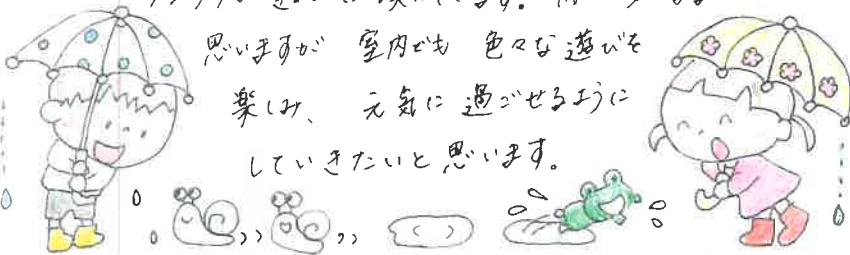 思いますが 室内でも 色々な遊びを
楽しみ、 元気に過ごせるように
していきたいと思います。